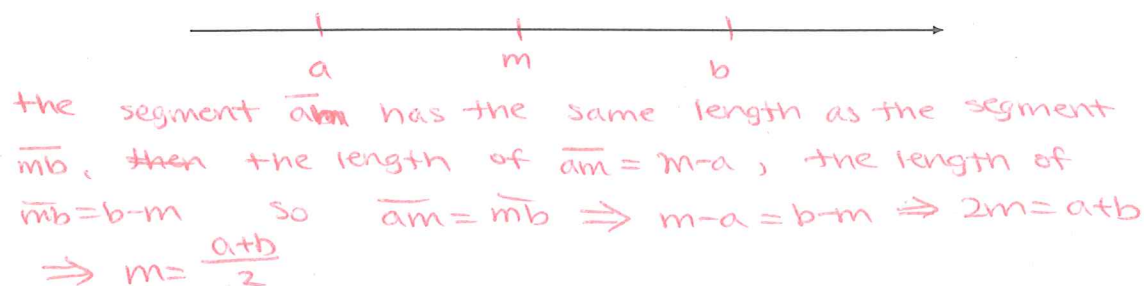 a m b
the segment a̅m̅ has the same length as the segment
m̅b̅, then the length of a̅m̅ = m-a, the length of
m̅b̅ = b-m so a̅m̅ = m̅b̅ ⇒ m-a = b-m ⇒ 2m = a+b
⇒ m = \frac{a+b}{2}